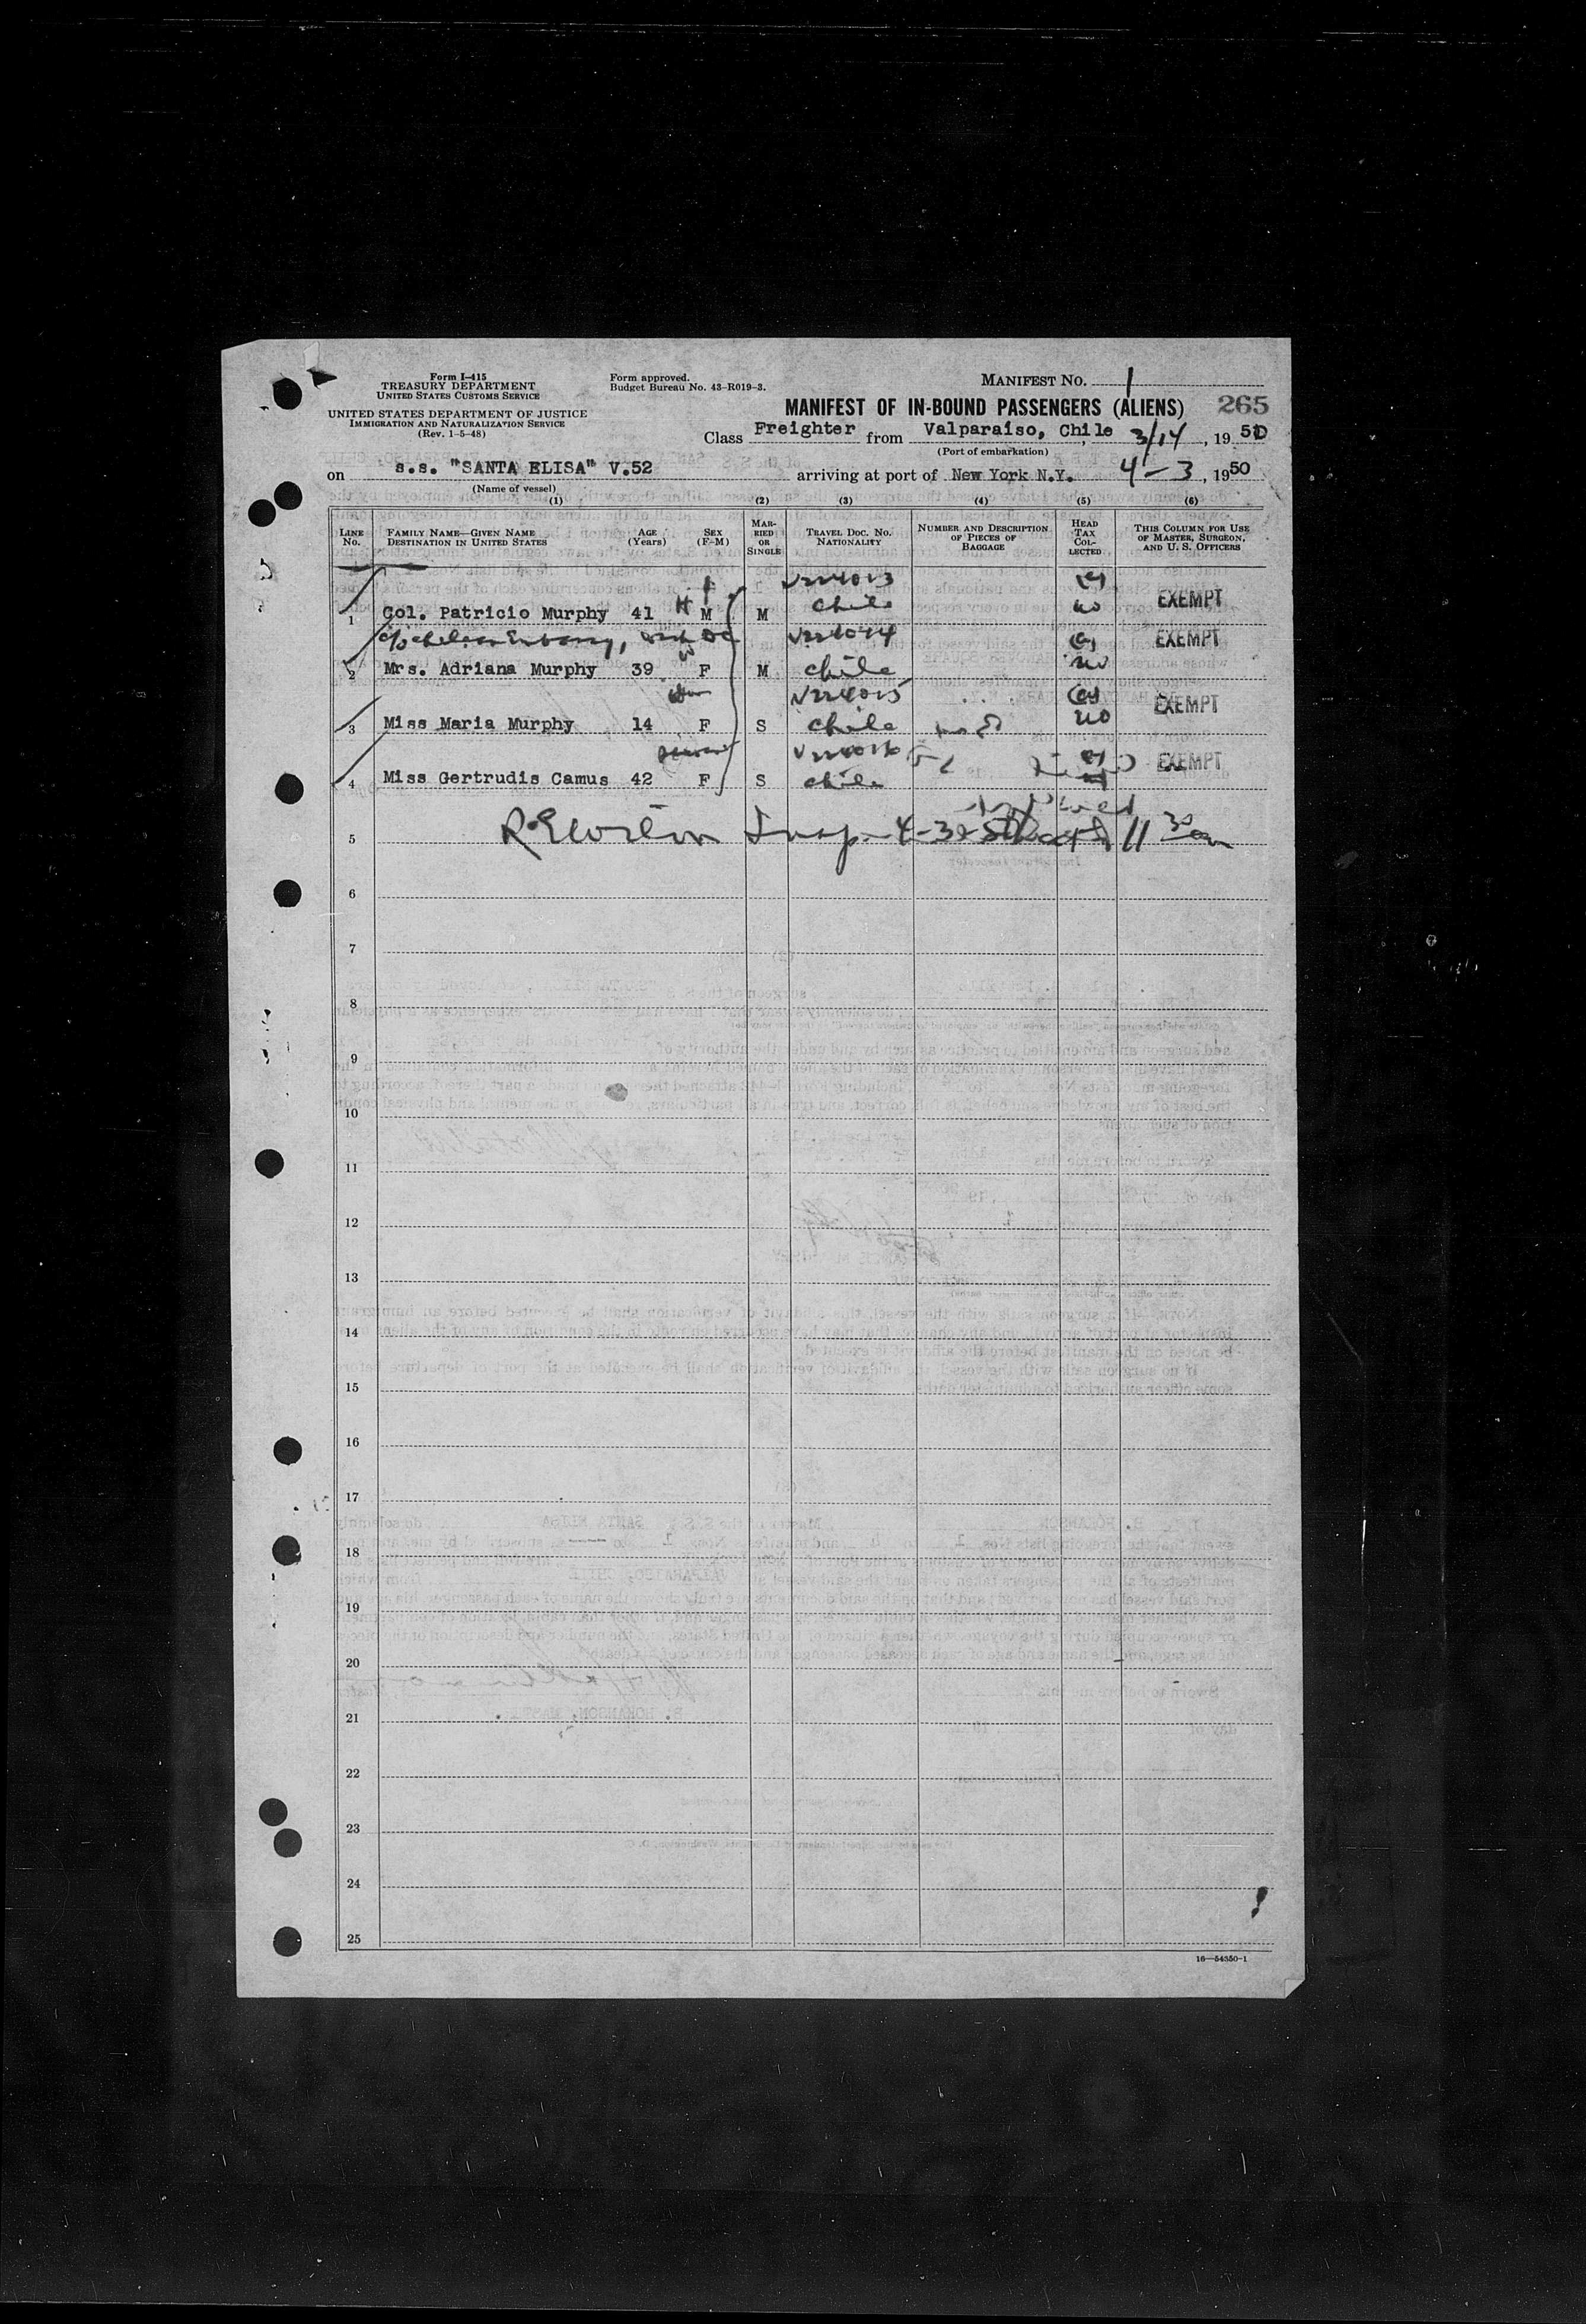 Form I-415
TREASURY DEPARTMENT
UNITED STATES CUSTOMS SERVICE
UNITED STATES DEPARTMENT OF JUSTICE
IMMIGRATION AND NATURALIZATION SERVICE
(Rev. 1-5-48)
Form approved.
Budget Bureau No. 43-R019-3.
MANIFEST NO. 1
MANIFEST OF IN-BOUND PASSENGERS (ALIENS) 265
Class Freighter from Valparaiso, Chile 3/14, 1950
(Port of embarkation)
on s.s. "SANTA ELISA" V.52 arriving at port of New York N.Y. 4-3, 1950
(Name of vessel)
(1) (2) (3) (4) (5) (6)
LINE NO. FAMILY NAME—GIVEN NAME DESTINATION IN UNITED STATES AGE (Years) SEX (F-M) MARRIED OR SINGLE TRAVEL DOC. NO. NATIONALITY NUMBER AND DESCRIPTION OF PIECES OF BAGGAGE HEAD TAX COLLECTED THIS COLUMN FOR USE OF MASTER, SURGEON, AND U. S. OFFICERS
1 Col. Patricio Murphy 41 H M M Chile no EXEMPT
2 Mrs. Adriana Murphy 39 W F M Chile no EXEMPT
3 Miss Maria Murphy 14 F S Chile no EXEMPT
4 Miss Gertrudis Camus 42 F S Chile EXEMPT
5 Insp. 11 30 am
6
7
8
9
10
11
12
13
14
15
16
17
18
19
20
21
22
23
24
25
16—54350-1